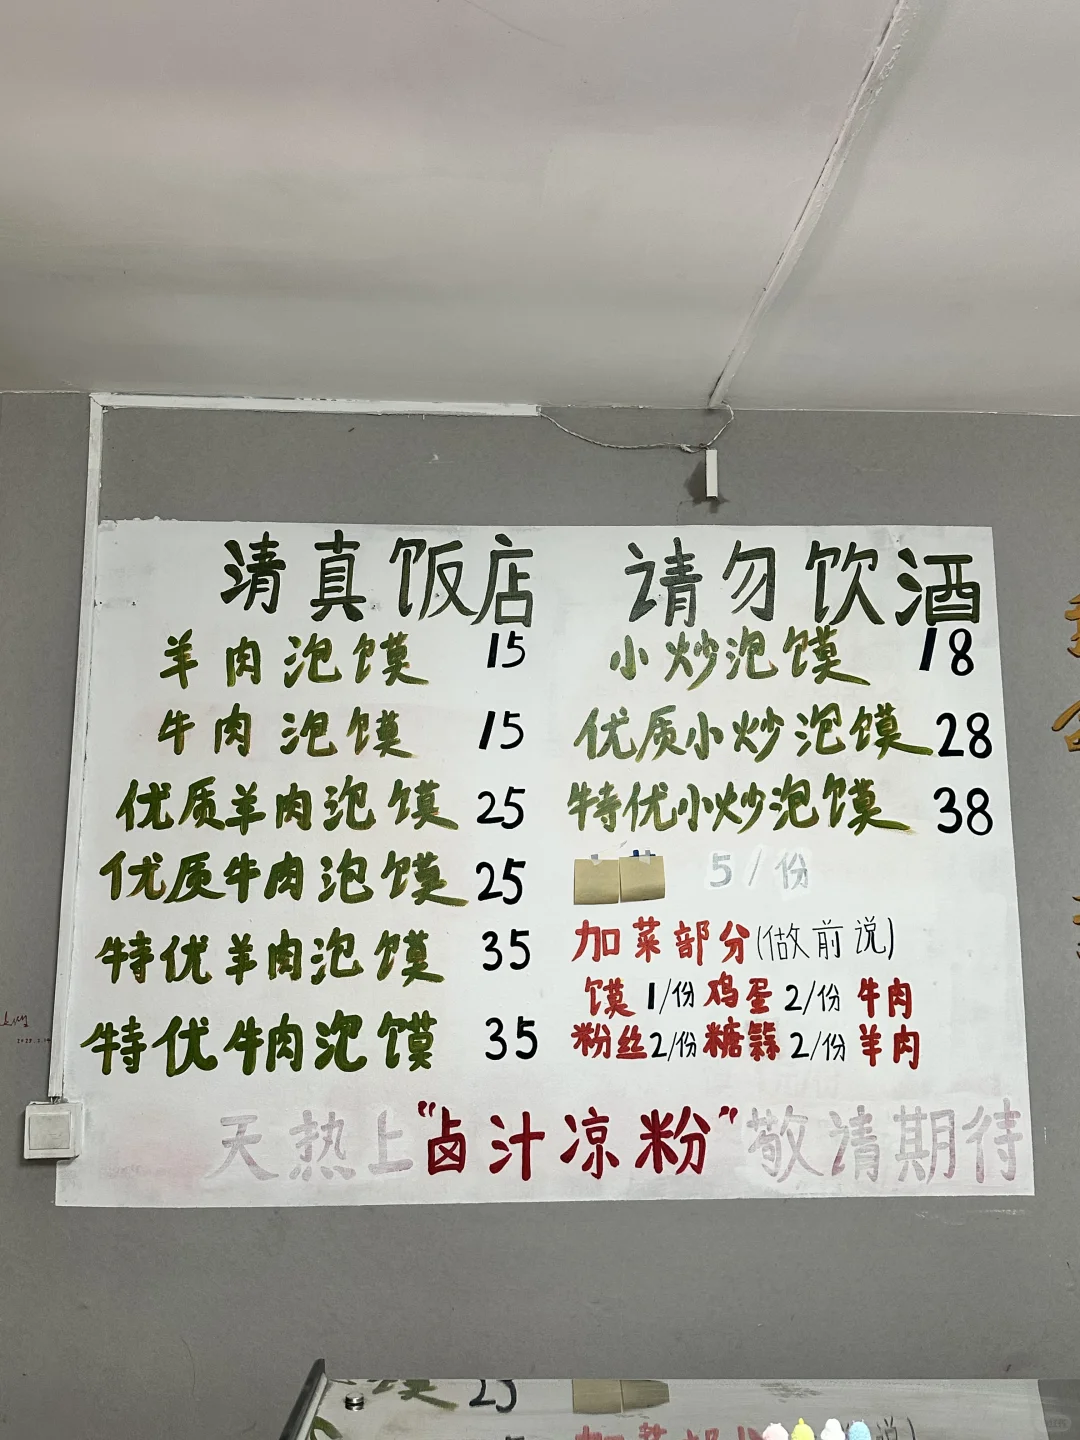 清真饭店 请勿饮酒
羊肉泡馍 15
牛肉泡馍 15
优质羊肉泡馍 25
优质牛肉泡馍 25
特优羊肉泡馍 35
特优牛肉泡馍 35
小炒泡馍 18
优质小炒泡馍 28
特优小炒泡馍 38
5/份
加菜部分(做前说)
馍 1/份 鸡蛋 2/份 牛肉
粉丝 2/份 糖蒜 2/份 羊肉
天热上"卤汁凉粉"敬请期待